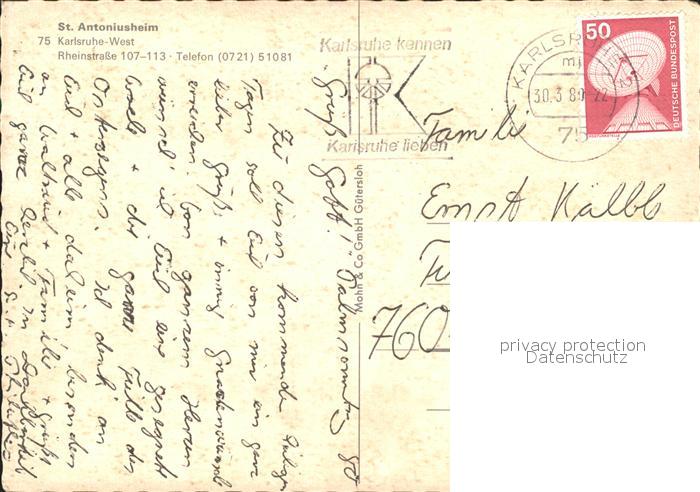 St. Antoniusheim
75 Karlsruhe-West
Rheinstraße 107–113 · Telefon (0721) 51081
Karlsruhe kennen
K
Karlsruhe lieben
KARLSRUHE
30.3.80-22
75
50
DEUTSCHE BUNDESPOST
Mohn & Co GmbH Gütersloh
Familie
Ernst Kälble
760
privacy protection
Datenschutz
"Grüß Gott!" Palmsonntag 80
Zu diesen kommende heilige
Tagen soll Euch von mir ein ganz
lieber Gruß + innig
erreichen. Von ganzem Herzen
wünsch' ich Euch eine gesegnete
+ die ganze Fülle der
Ostersegens. Ich denk' an
Euch + alle daheim besonders
an Waltraud + Familie + grüße
Euch ganz herzlich. In Dankbarkeit
Eure